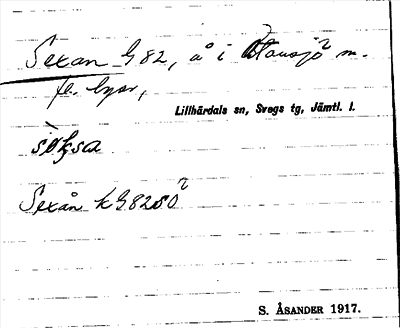 Sexan G 82, å i Olausjö m.
fl. byar,
Lillhärdals sn, Svegs tg, Jämtl. l.
søksa
Sexån kG82SO
S. ÅSANDER 1917.